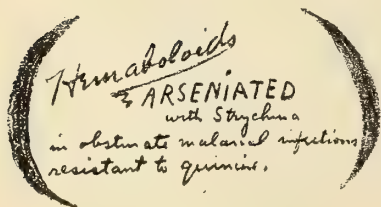 Hemaboloids
ARSENIATED
with Strychnia
in obstinate malarial infections
resistant to quinine.